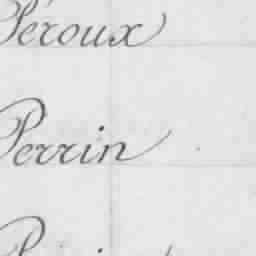 Péroux
Perrin